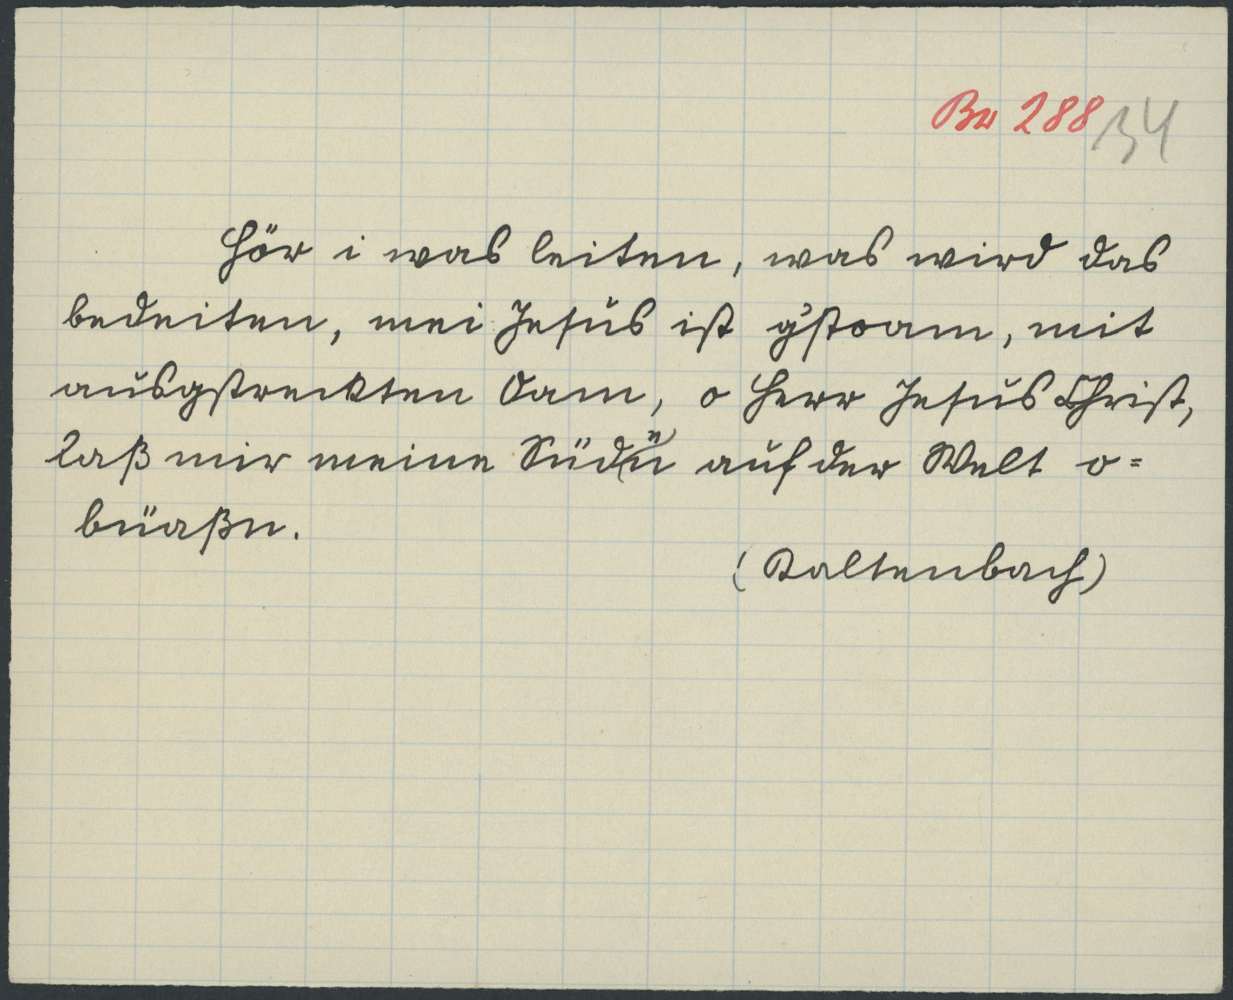 Bu 288/34
Hör i was leiten, was wird das
bedeiten, mei Jesus ist g'stoam, mit
ausgstreckten Oam, o Herr Jesus Christ,
laß mir meine auf der Welt o=
büaßn.
(Kaltenbach)